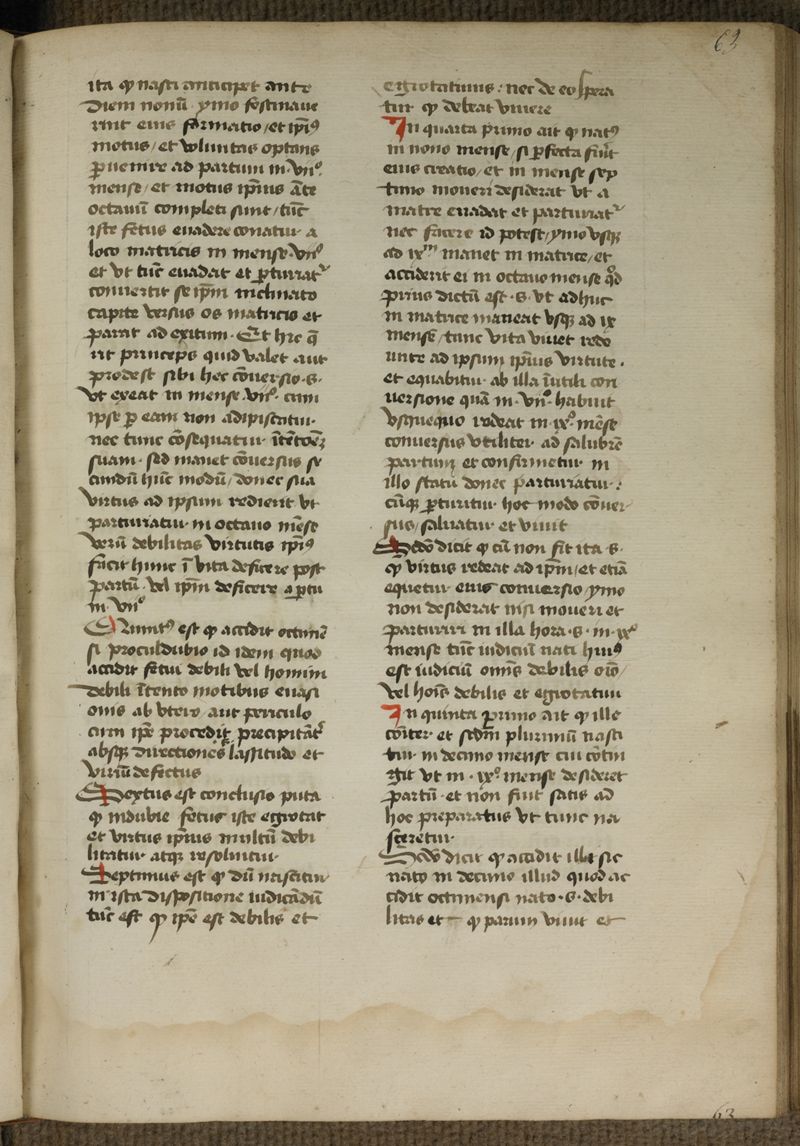 63
ita ꝙ nasci anticipet ante
diem nonū ymo festinaue
rint eius formatio / et ip̄iꝰ
motus / et voluntas optans
ꝑuenire ad partum in vijº
mense / et motus ip̄ius āte
octauū completi sunt / tūc
iste fetus euadere conatur a
loco matricis in mense vijº
et vt tūc euadat et ꝑturiat
conuertit se ip̄m inclinato
capite versus os matricis et
parat ad exitum. Et hic q̄
rit princeps quid valet aut
prodest sibi hec cōuersio .s.
vt exeat in mense vijº. cum
ipse ꝑ eam non adipiscatur
nec tunc cōsequatur ītētōeꝫ
suam. sed manet cōuersus se
cundū hūc modū / donec sua
virtus ad ipsum redierit vt
parturiatur in octauo mēse
verū debilitas virtutis ip̄iꝰ
facit hunc ī vita deficere post
partū vel ip̄m deficere a ꝑtu
in vijº
Quintꝰ est ꝙ accidit octime
si proculdubio id idem quod
accidit fetui debili vel homini
debili ītento motibus euasi
onis ab vtero aut periculo
cum ip̄e procedit precipitāt
absqꝫ directione lassitudo et
viriū defectus
Sextus est conclusio puta
ꝙ indubie fetus iste egrotat
et virtus ip̄ius multū debi
litatur atqꝫ resoluitur
Septimus est ꝙ dū nascitur
in ista dispositione iudicādū
tūc est ꝙ ip̄e est debilis et
egrotatiuus: nec de eo spera
tur ꝙ debeat viuere
In quarta primo ait ꝙ natꝰ
in nono mense, si ꝑfecta fiūt
eius creatio, et in mense sep
timo moueri desiderat vt a
matre euadat et parturiat
nec facere id potest, ymo vsqꝫ
ad ixᵐ manet in matrice, et
accidit ei in octauo mense qd̄
prius dictū est .s. vt adhuc
in matrice maneat vsqꝫ ad ix
mensē, tunc vita viuet rede
unte ad ipsum ip̄ius virtute.
et equabitur ab illa īutili con
uersione quā in vijº habuit
vsquequo redeat in ixº mēse
conuersus vtiliter ad salubrē
partum et confirmetur in
illo statu donec parturiatur:
cūqꝫ ꝑturitur hoc modo cōuer
sus / saluatur et viuit
Secdo dicit ꝙ cū non sit ita .s.
ꝙ virtus redeat ad ip̄m / et etiā
equetur eius conuersio / ymo
non desiderat nisi moueri et
parturiri in illa hora .s. in ixº
mense tūc iudiciū nati huiꝰ
est iudiciū omīs debilis
vel hoīs debilis et egrotatiui
In quinta primo ait ꝙ ille
cōiter et scdm plurimū nasci
tur in decimo mense cui cōtin
git vt in ixº mense desideret
partū et non fiut satis ad
hoc preparatus vt tunc na
sceretur
Secdo dicit ꝙ accidit illi sic
nato in decimo illud quod ac
cidit octimensi nato .s. debi
litas et ꝙ parum viuit et
63